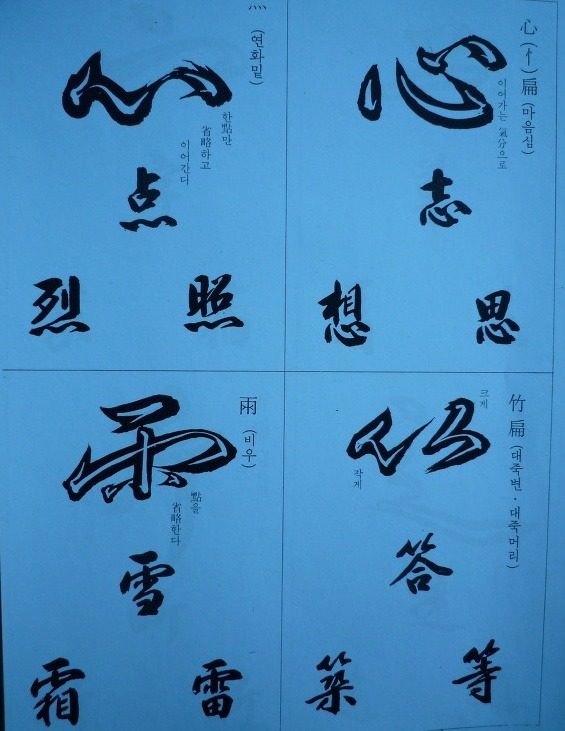 心(忄)扁(마음심)
이어가는 氣分으로
心
志
思
想
灬(연화밑)
한點만
省略하고
이어간다
灬
点
照
烈
竹扁(대죽변·대죽머리)
크게
작게
答
等
築
雨(비우)
點을
省略한다
雨
雪
雷
霜